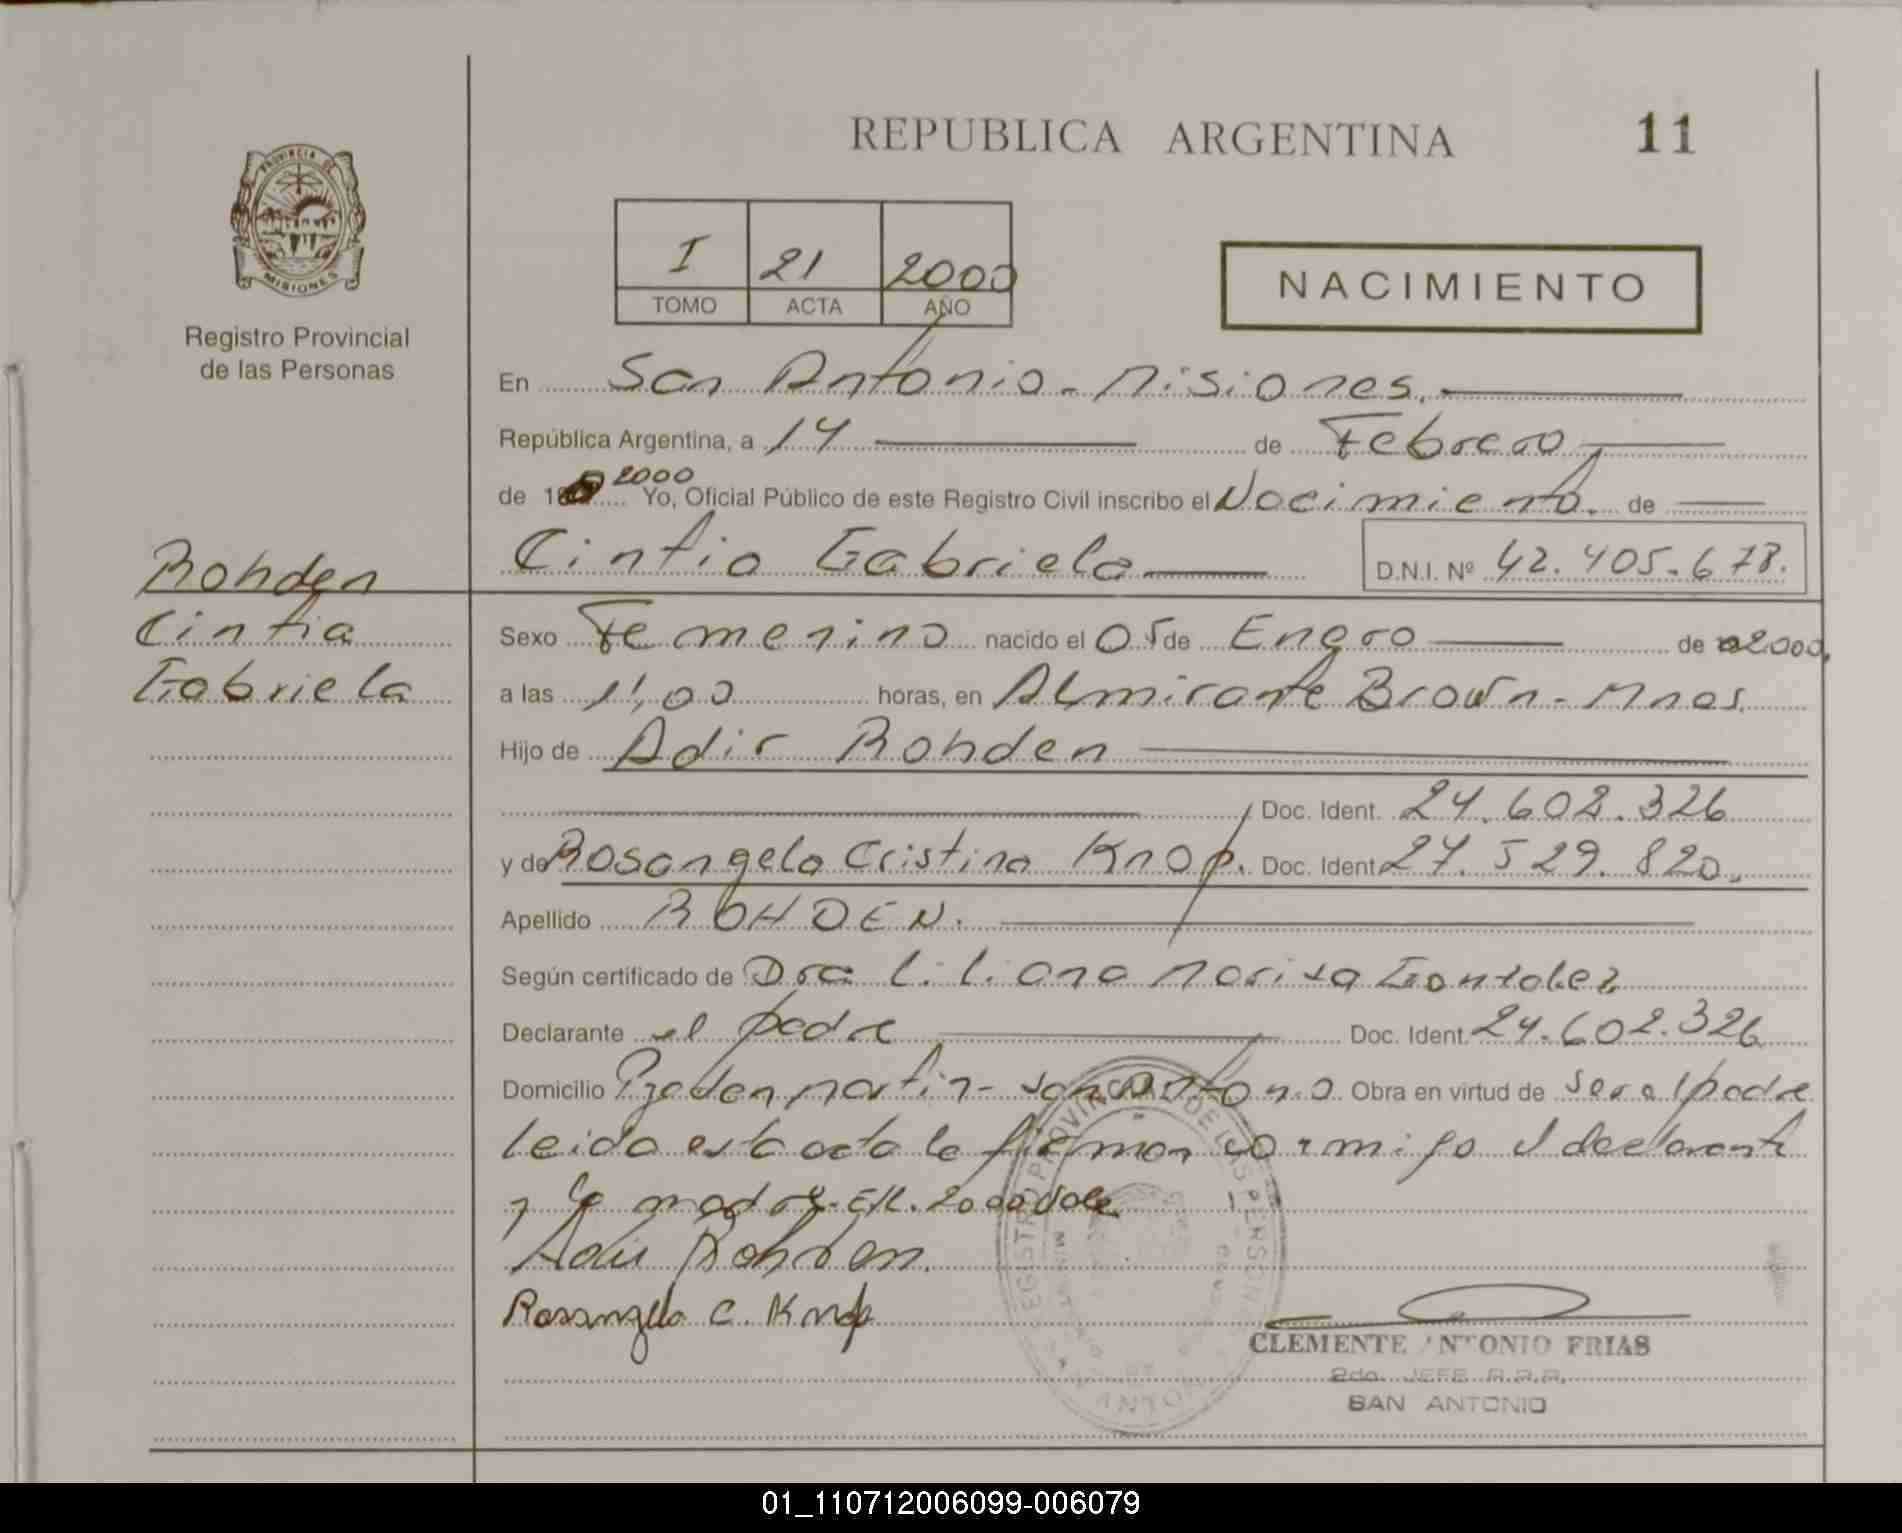 REPUBLICA ARGENTINA
11
PROVINCIA DE
MISIONES
Registro Provincial
de las Personas
I 21 2000
TOMO ACTA AÑO
NACIMIENTO
En San Antonio - Misiones.
República Argentina, a 14 de Febrero
de 2000 Yo, Oficial Público de este Registro Civil inscribo el Nacimiento. de
Cintia Gabriela D.N.I. Nº 42.405.678.
Rohden
Cintia
Gabriela
Sexo Femenino nacido el 05 de Enero de 2000.
a las 11,00 horas, en Almirante Brown - Mnes.
Hijo de Adir Rohden
Doc. Ident. 24.602.326
y de Rosangela Cristina Knop. Doc. Ident. 27.529.820.
Apellido ROHDEN.
Según certificado de Dra Liliana Marisa Gonzalez
Declarante el padre Doc. Ident. 24.602.326
Domicilio martin - san antonio Obra en virtud de ser el padre
leida esta acta la firman conmigo el declarante
y la madre - E/L. 2000 Vale
Adir Rohden.
Rosangela C. Knop
REGISTRO PROVINCIAL DE LAS PERSONAS
SAN ANTONIO
CLEMENTE ANTONIO FRIAS
2do. JEFE R.P.P.
SAN ANTONIO
01_110712006099-006079